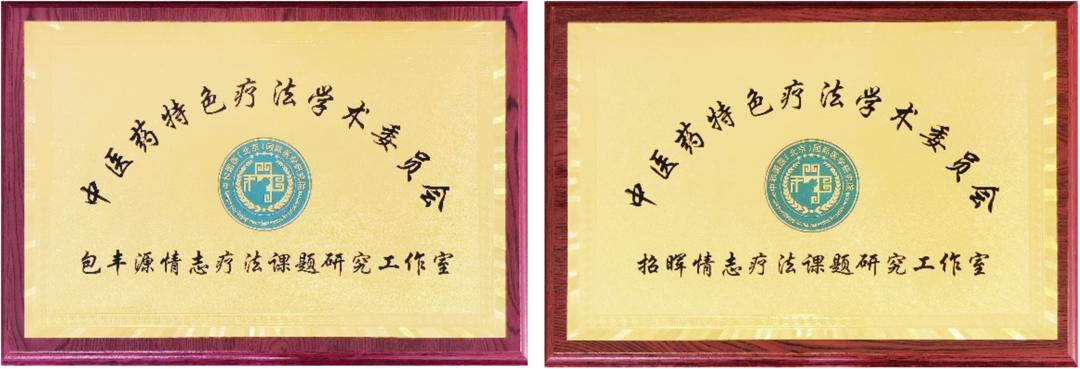 中医药特色疗法学术委员会
包丰源情志疗法课题研究工作室
中医药特色疗法学术委员会
招晖情志疗法课题研究工作室